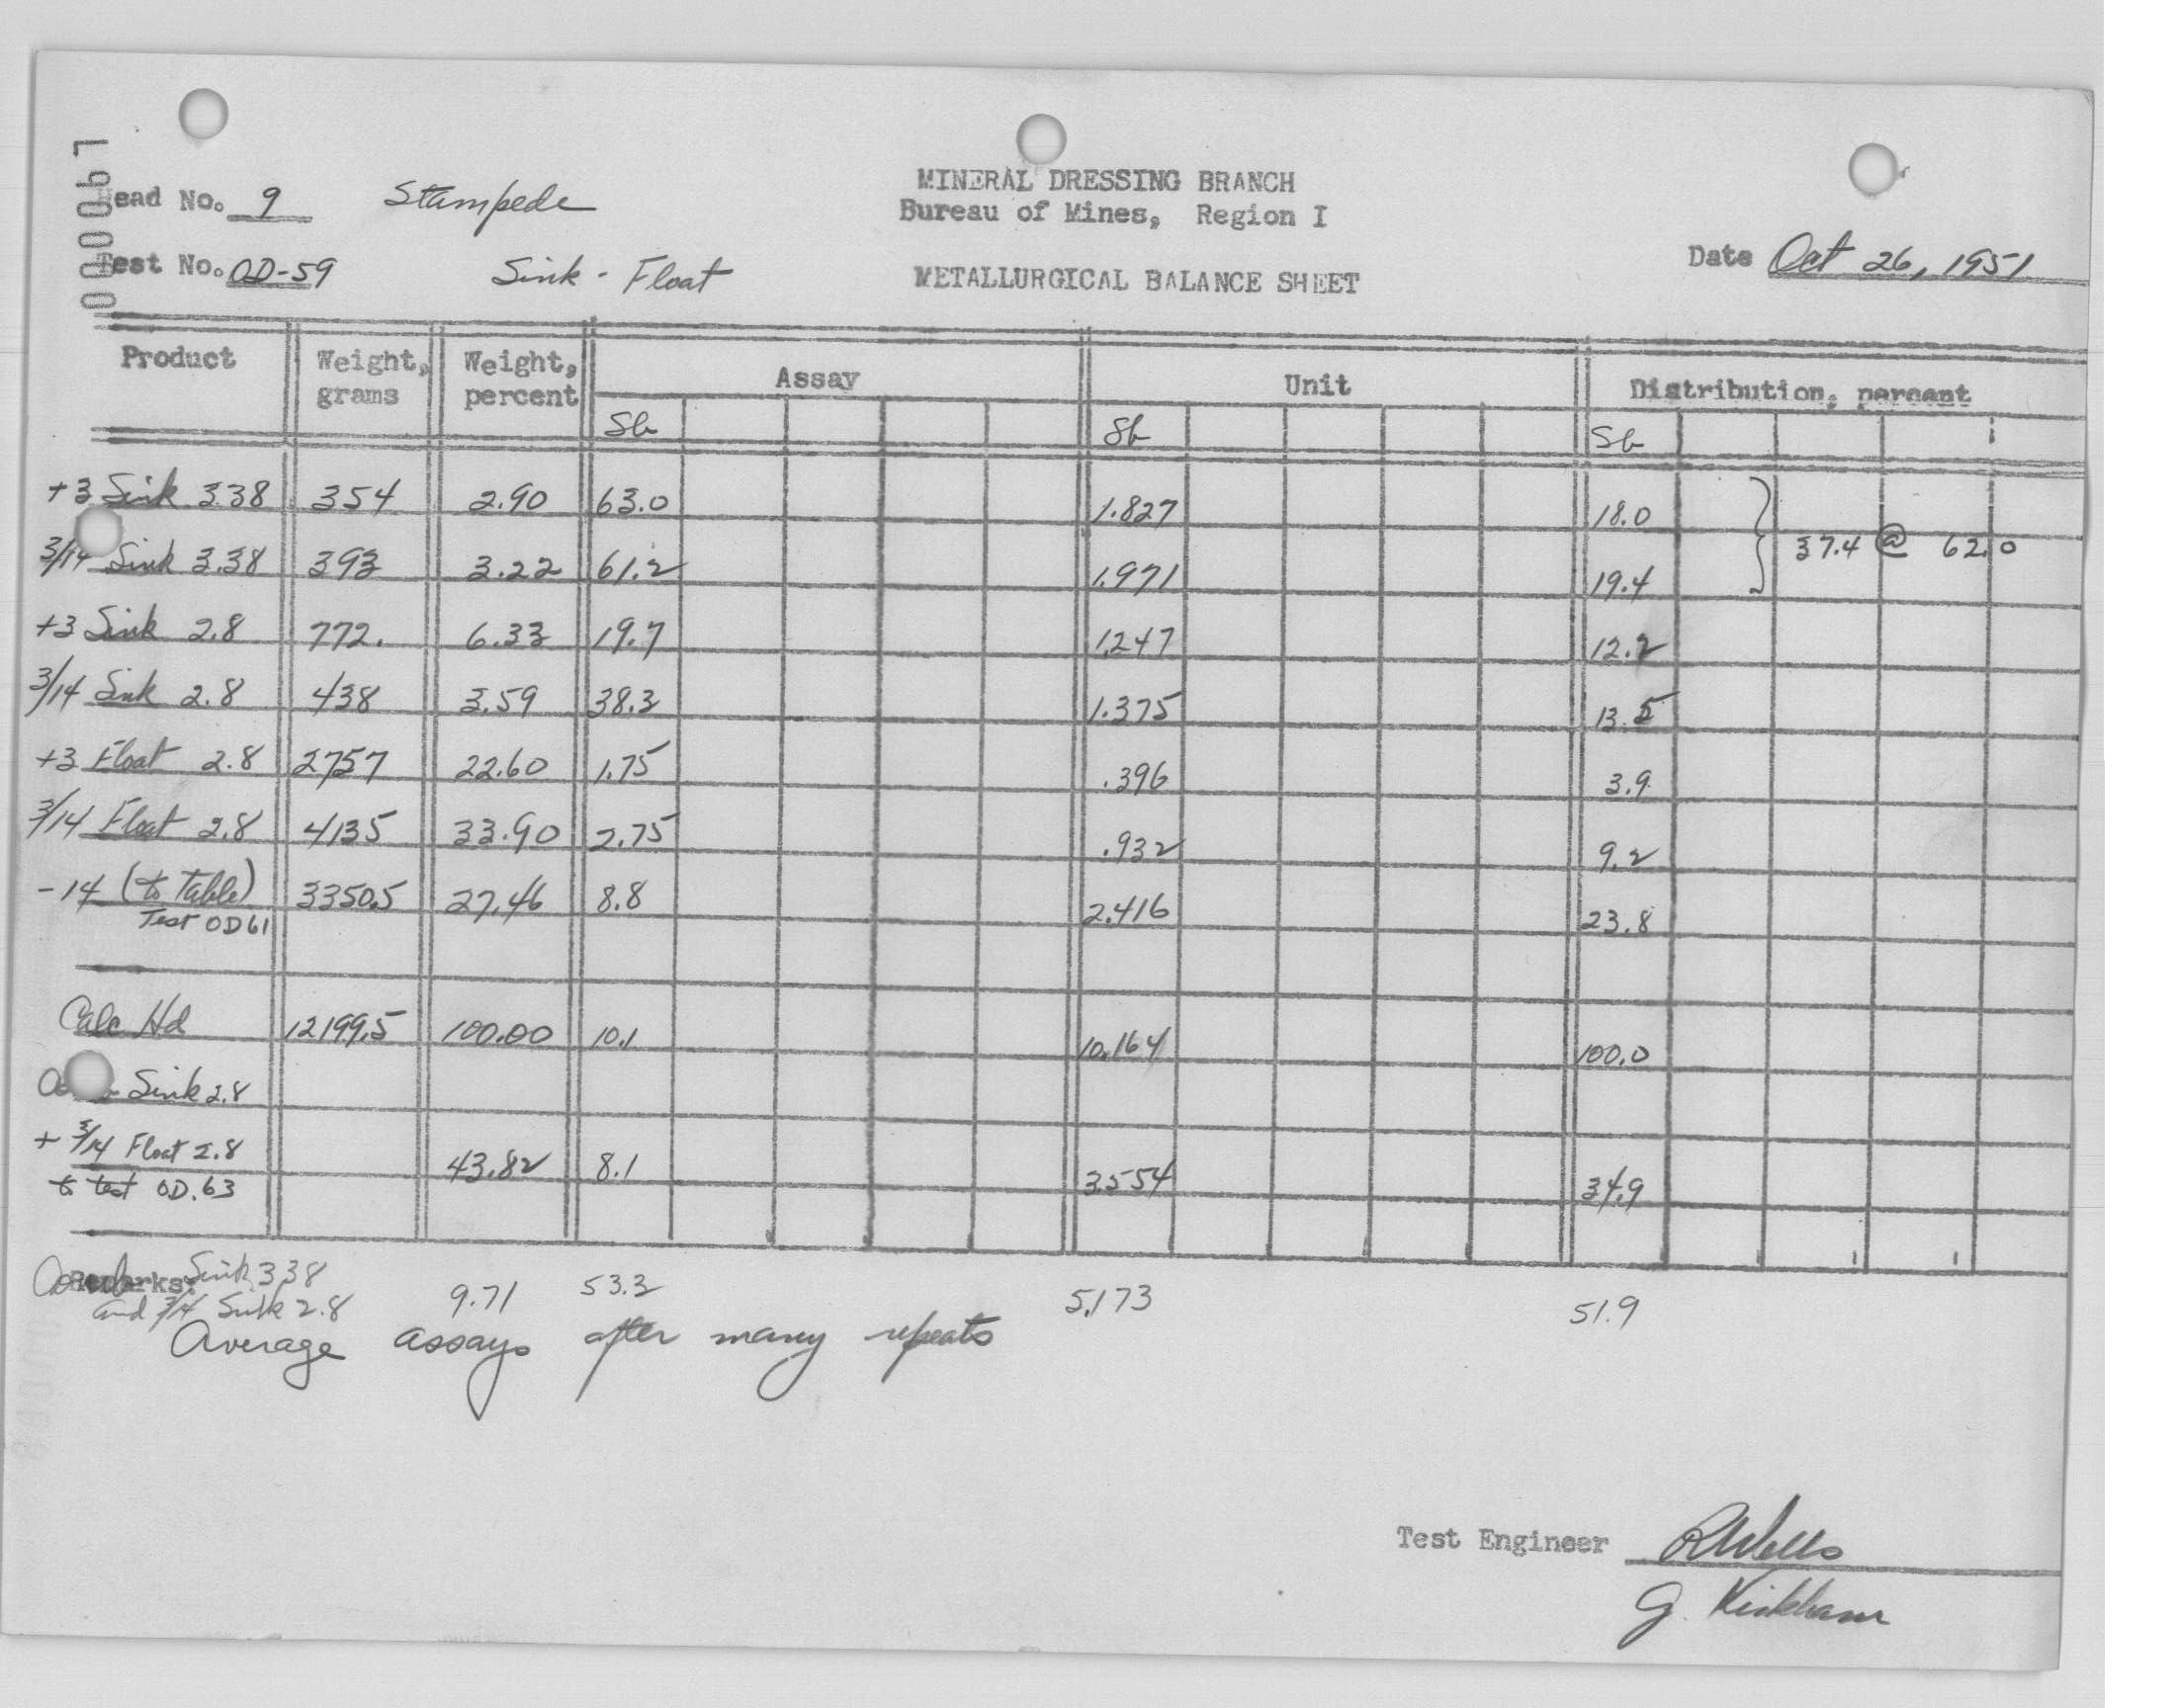 L90000
Head No. 9 Stampede MINERAL DRESSING BRANCH
Bureau of Mines, Region I
Test No. OD-59 Sink - Float METALLURGICAL BALANCE SHEET Date Oct 26, 1951
Product Weight, grams Weight, percent Assay Unit Distribution, percent
Sb Sb Sb
+3 Sink 3.38 354 2.90 63.0 1.827 18.0
37.4 @ 62.0
3/14 Sink 3.38 393 3.22 61.2 1.971 19.4
+3 Sink 2.8 772. 6.33 19.7 1.247 12.2
3/14 Sink 2.8 438 3.59 38.3 1.375 13.5
+3 Float 2.8 2757 22.60 1.75 .396 3.9
3/14 Float 2.8 4135 33.90 2.75 .932 9.2
-14 (to Table) 3350.5 27.46 8.8 2.416 23.8
Test OD61
Calc Hd 12199.5 100.00 10.1 10.164 100.0
Sink 2.8
+ 3/14 Float 2.8 43.82 8.1 3.554 34.9
to test OD.63
Remarks:
Comb Sink 3.38
and 3/14 Sink 2.8 9.71 53.2 5.173 51.9
Average assays after many repeats
Test Engineer RWells
G. Kirkham